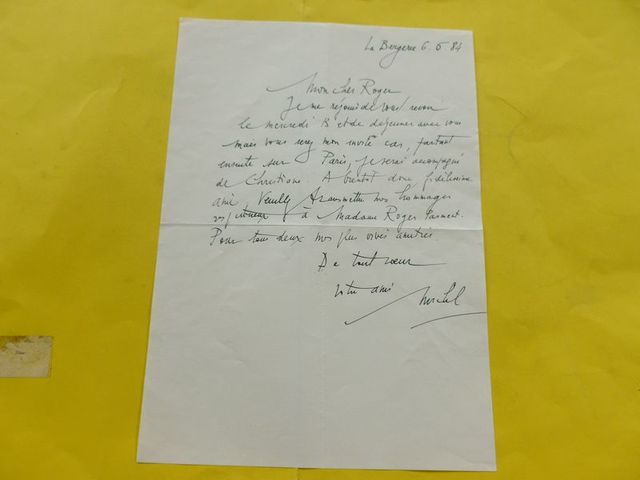 La Bergerie 6. 5 84
Mon cher Roger
Je me réjouis de vous revoir
le mercredi et de déjeuner avec vous
mais vous serez mon invité car, partant
ensuite sur Paris, je serai accompagné
de Christiane. A bientôt donc fidélissime
ami Veuillez transmettre nos hommages
à Madame Roger
Pour tous deux nos plus vives amitiés
De tout coeur
Votre ami Michel